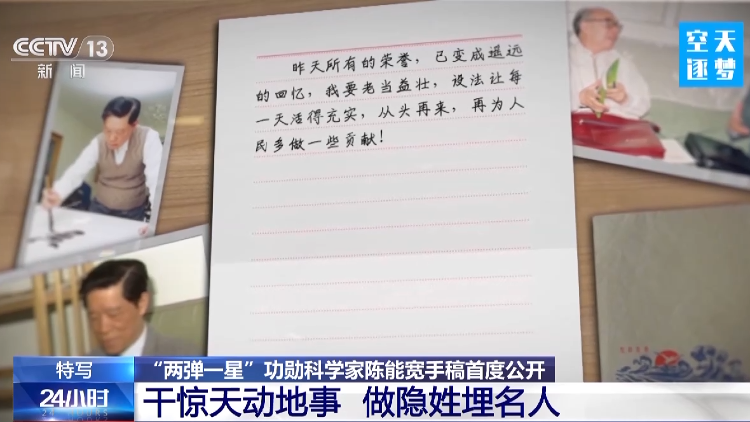 CCTV 13
新闻
空天
逐梦
昨天所有的荣誉，已变成遥远
的回忆，我要老当益壮，设法让每
一天活得充实，从头再来，再为人
民多做一些贡献！
特写
“两弹一星”功勋科学家陈能宽手稿首度公开
24小时
干惊天动地事 做隐姓埋名人